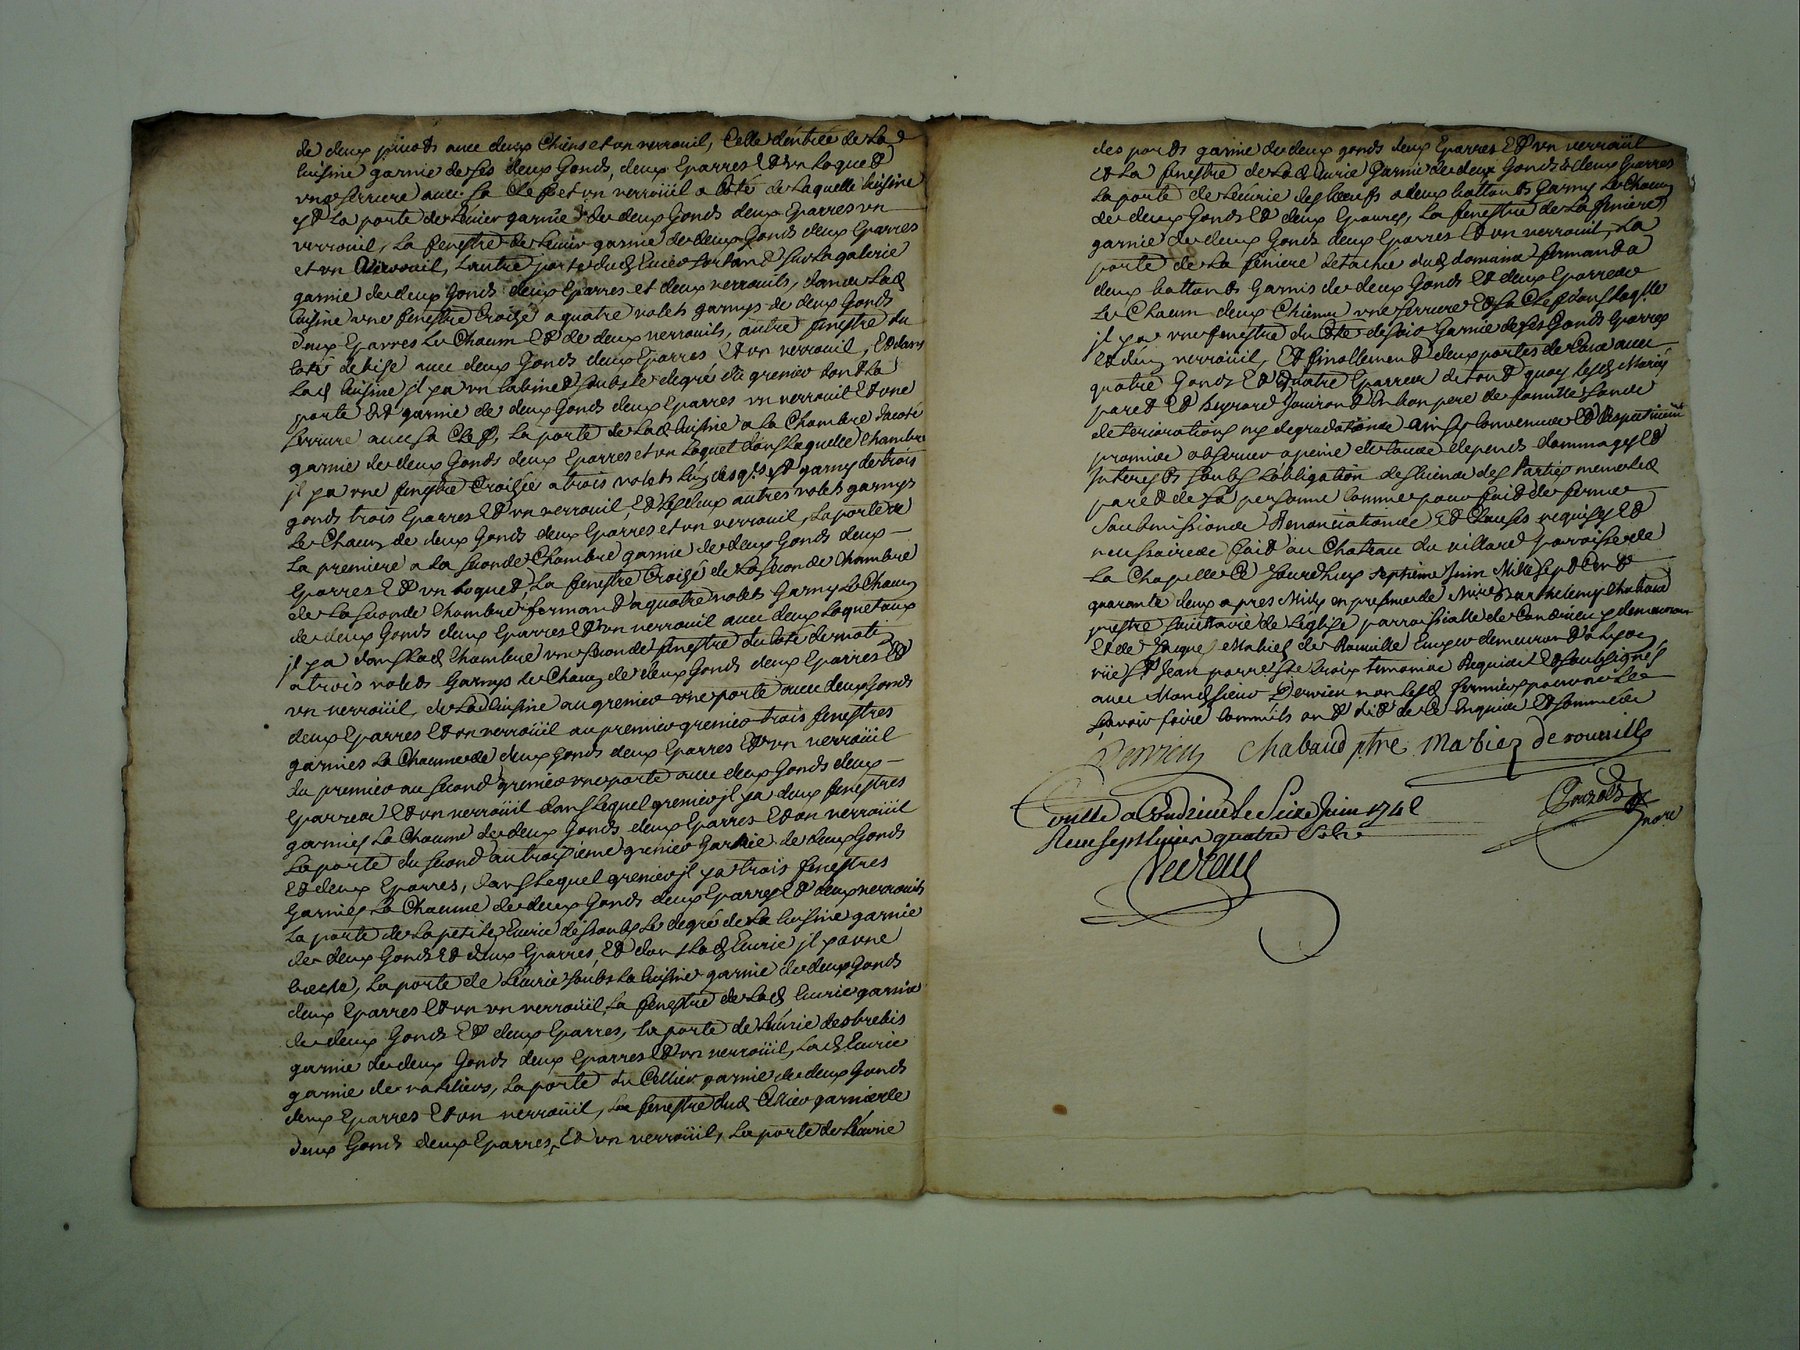 de deux pivots avec deux Chiens et un verrouil, Celle dentrée de Lad
Cuisine garnie de ses deux Gonds, deux Eparres Et un Loquet
une serrure avec sa Clef et un verroüil a Coté de Laquelle Cuisine
est La porte de Levier garnie de deux Gonds deux Eparres un
verrouil, La fenestre de Levier garnie de deux Gonds deux Eparres
et un verrouil, Lautre porte dud Evier sortant sur La galerie
garnie de deux Gonds deux Eparres et deux verrouils, dans Lad
Cuisine une fenestre Croisée a quatre volets garnys de deux Gonds
deux Eparres Le Chacun Et de deux verrouils, autre fenestre du
Coté de bise avec deux Gonds deux Eparres Et un verrouil, Et dans
Lad Cuisine il ya un Cabinet soubs Le degré du grenier dont La
porte Est garnie de deux Gonds deux Eparres un verrouil Et une
serrure avec sa Clef, La porte de Lad Cuisine a La Chambre
garnie de deux Gonds deux Eparres et un Loquet dans Laquelle Chambre
il ya une fenestre Croisée a trois volets est garny de trois
gonds trois Eparres Et un verrouil, Et Les deux autres volets garnys
Le Chacun de deux Gonds deux Eparres et un verrouil, La porte de
La premiere a La seconde Chambre garnie de deux Gonds deux
Eparres Et un Loquet, La fenestre Croisé de La seconde Chambre
de La seconde Chambre fermant a quatre volets Garnys Le Chacun
de deux Gonds deux Eparres Et un verrouil avec deux Loquetaux
il ya dans Lad Chambre une seconde fenestre du Coté de
a trois volets Garnys Le Chacun de deux Gonds deux Eparres Et
un verroüil, de Lad Cuisine au grenier une porte avec deux Gonds
deux Eparres Et un verroüil au premier grenier trois fenestres
garnies La Chacune de deux Gonds deux Eparres Et un verroüil
du premier au second grenier une porte avec deux Gonds deux
Eparres Et un verroüil dans Lequel grenier il ya deux fenestres
garnies La Chacune de deux Gonds deux Eparres Et un verroüil
La porte du second au troisieme grenier Garnie de deux Gonds
Et deux Eparres, dans Lequel grenier il ya trois fenestres
Garnies La Chacune de deux Gonds deux Eparres Et deux verrouils
La porte de La petite Ecurie dessoubs Le degré de La Cuisine garnie
de deux Gonds Et deux Eparres, Et dans Lad Ecurie il ya une
creche, La porte de Lecurie soubs La Cuisine garnie de deux Gonds
deux Eparres Et un un verroüil, La fenestre de Lad Ecurie garnie
de deux Gonds Et deux Eparres, La porte de Lécurie des brebis
garnie de deux Gonds deux Eparres Et un verroüil, Lad Ecurie
garnie de rateliers, La porte du Cellier garnie de deux Gonds
deux Eparres Et un verroüil, La fenestre dud Cellier garnie de
deux Gonds deux Eparres, Et un verroüil, La porte de Lécurie
des porcts garnie de deux gonds deux Eparres Et un verroüil
Et La fenestre de Lad Ecurie Garnie de deux Gonds Et deux Eparres
La porte de Lécurie des boeufs a deux battants Garnys Le Chacun
de deux Gonds Et deux Eparres, La fenestre de La feniere
garnie de deux Gonds deux Eparres Et un verrouil, La
porte de La feniere detachée dud domaine fermant a
deux battants Garnis de deux Gonds Et deux Eparres
Le Chacun deux Chiens une serrure Et sa Clef dans Laqlle
il ya une fenestre du Coté de soir Garnie de ses Gonds Eparres
Et dun verroüil, Et finallement deux portes de Cave avec
quatre Gonds Et quatre Eparres de tout quoy Lesd Mariés
jouiront En bon pere de famille sans
deteriorations ny degradations ainsy Convenu Et Respectivement
promis observer a peine de tous depends dommages Et
Interests soubs Lobligation des biens des Parties
de sa personne Comme pour fait de ferme
soubmissions Renonciations Et Clauses requises Et
necessaires fait au Chateau du villard parroisse de
La Chapelle Ce Jourdhuy septieme Juin Mille sept Cent
quarante deux apres Midy en presence de Mire Barthelemy Chabaud
prestre societaire de Léglise parroissialle de Condrieu y demeurant
Et de Jacques Mabiez de Rouville Ecuyer demeurant a Lyon
rüe St Jean parroisse Ste Croix temoins Requis Et soubsignés
avec Monsieur Perrier non Lesd fermiers pour ne Le
scavoir faire Comme ils ont dit de Ce Enquis Et sommés
Chabaud ptre Mabiez de rouville
Conlle a Condrieu Le Seize Juin 1742
Reçu sept Livres quatre sols
nore